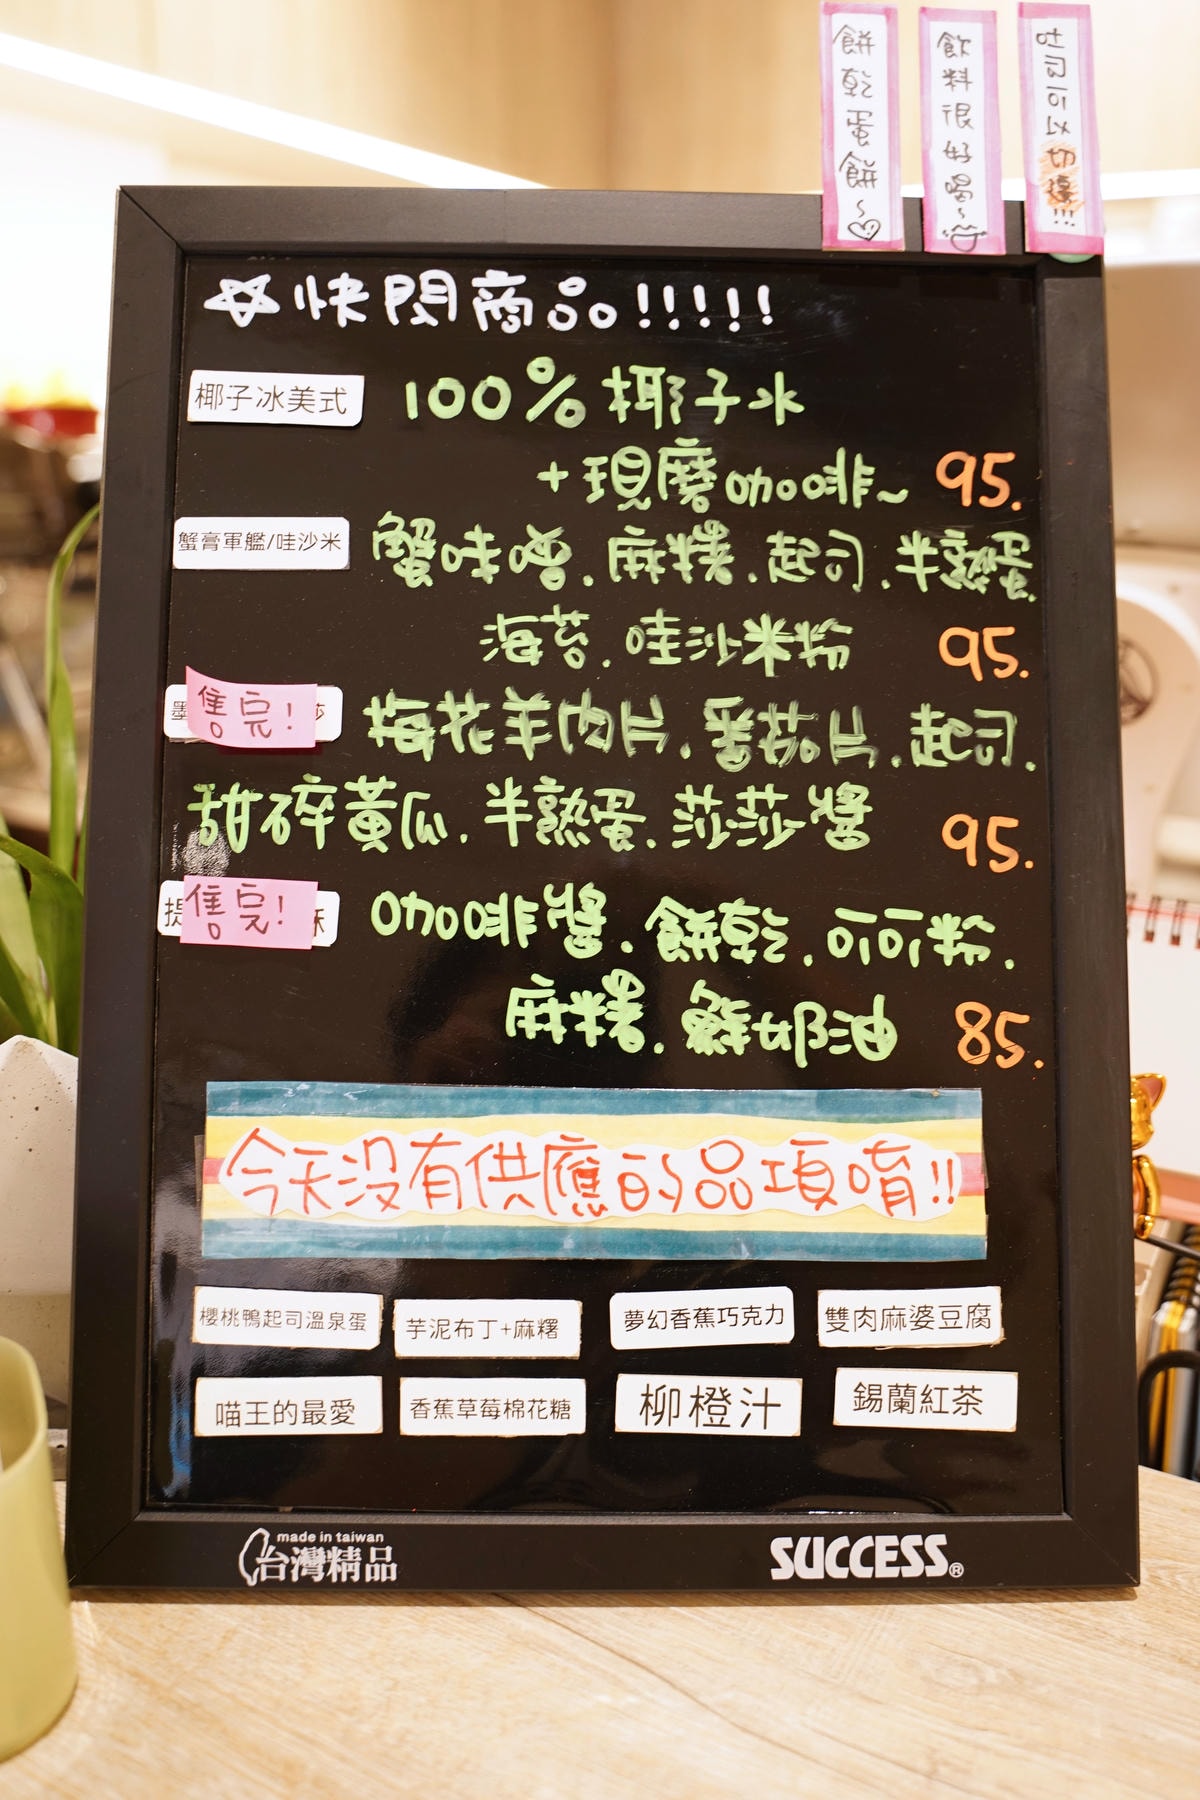 餅乾蛋餅~♡
飲料很好喝~
吐司可以切邊!!!
☆快閃商品!!!!!
椰子冰美式 100%椰子水
+現磨咖啡~ 95.
蟹膏軍艦/哇沙米 蟹味噌.麻糬.起司.半熟蛋.
海苔.哇沙米粉 95.
墨 售完! 莎 梅花羊肉片.番茄片.起司.
甜碎黃瓜.半熟蛋.莎莎醬 95.
提 售完! 酥 咖啡醬.餅乾.可可粉.
麻糬.鮮奶油 85.
今天沒有供應的品項唷!!
櫻桃鴨起司溫泉蛋 芋泥布丁+麻糬 夢幻香蕉巧克力 雙肉麻婆豆腐
喵王的最愛 香蕉草莓棉花糖 柳橙汁 錫蘭紅茶
made in taiwan
台灣精品 SUCCESS®